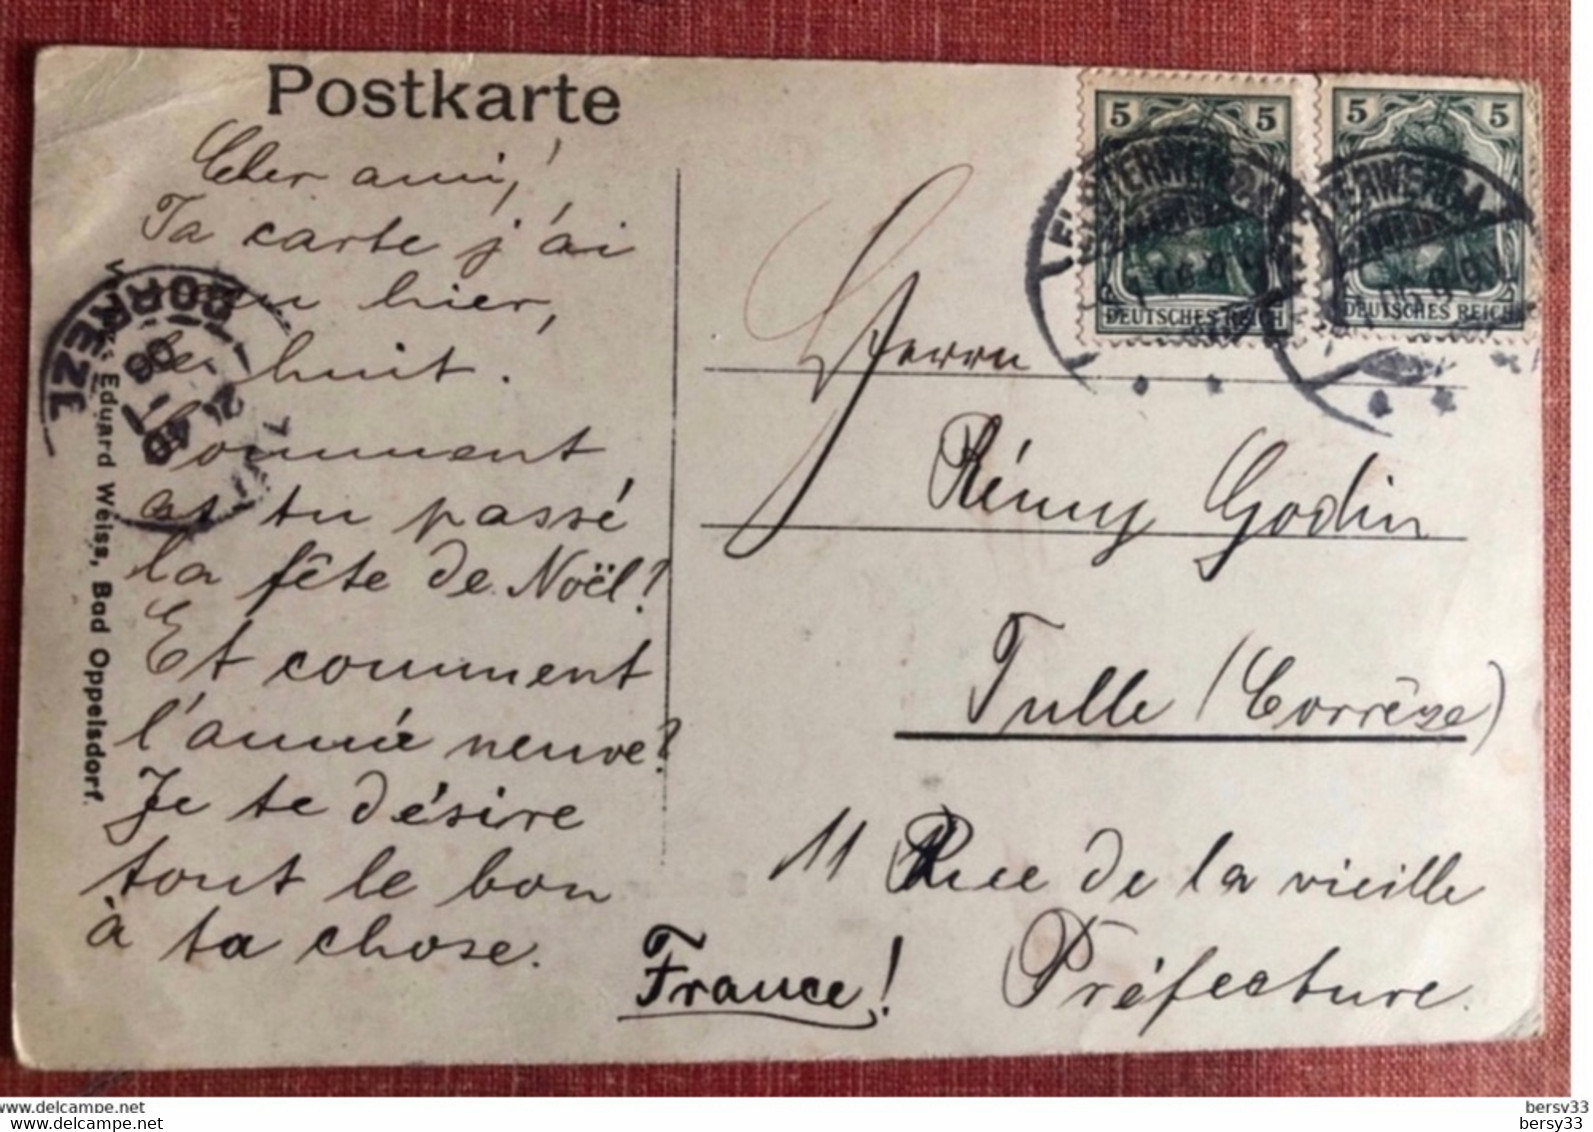 Postkarte
Cher ami,!
Ta carte j'ai
hier,
le huit.
Comment
as tu passé
la fête de Noël?
Et comment
l'année neuve?
Je te désire
tout le bon
à ta chose.
Eduard Weiss, Bad Oppelsdorf.
CORREZE
2 40
06
5 5
DEUTSCHES REICH
5 5
DEUTSCHES REICH
Herrn
Rémy Godin
Tulle (Corrèze)
11 Rue de la vieille
Préfecture.
France!
www.delcampe.net
www.delcampe.net
bersv33
bersy33